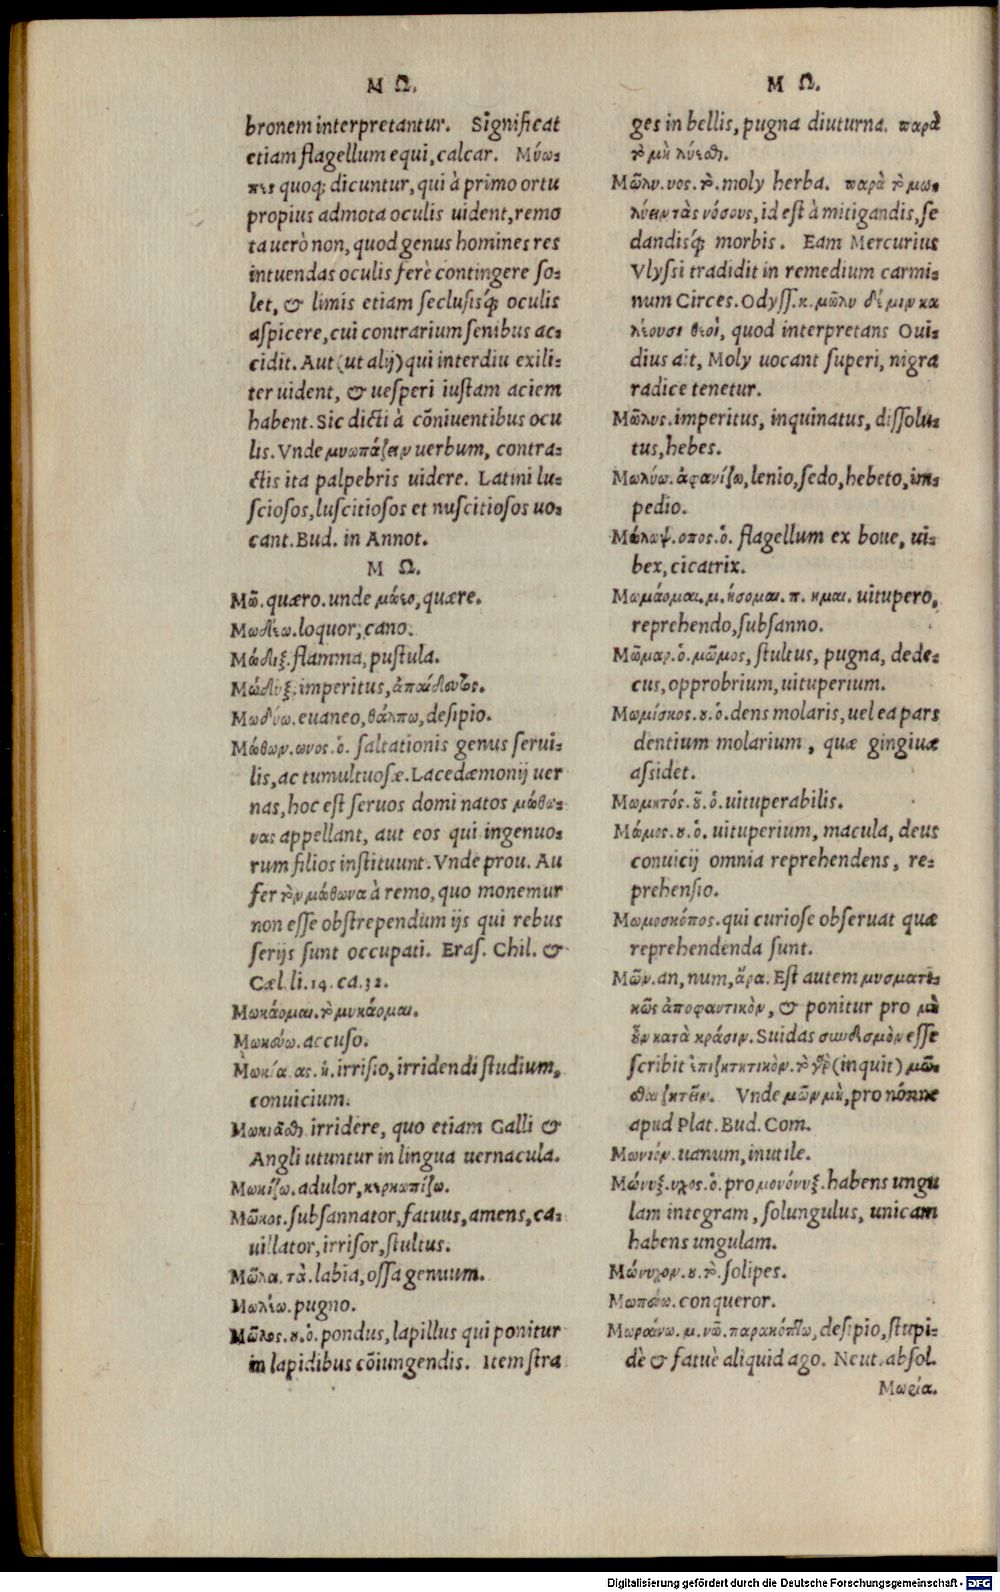 Μ Ω.
bronem interpretantur. Significat
etiam flagellum equi, calcar. Μύω⸗
πες quoq; dicuntur, qui à primo ortu
propius admota oculis uident, remo
ta uerò non, quod genus homines res
intuendas oculis ferè contingere so⸗
let, & limis etiam seclusisq́; oculis
aspicere, cui contrarium senibus ac⸗
cidit. Aut (ut alij) qui interdiu exili⸗
ter uident, & uesperi iustam aciem
habent. Sic dicti à cõniuentibus ocu
lis. Vnde μυωπάζειν uerbum, contra⸗
ctis ita palpebris uidere. Latini lu⸗
sciosos, luscitiosos et nuscitiosos uo⸗
cant. Bud. in Annot.
Μ Ω.
Μῶ. quæro. unde μώεο, quære.
Μωδέω. loquor, cano.
Μώδιξ. flamma, pustula.
Μώδυξ. imperitus, ἀπαίδευτος.
Μωδύω. euaneo, θάλπω, desipio.
Μώθων. ωνος. ὁ. saltationis genus serui⸗
lis, ac tumultuosæ. Lacedæmonij uer
nas, hoc est seruos domi natos μώθω⸗
νας appellant, aut eos qui ingenuo⸗
rum filios instituunt. Vnde prou. Au
fer τὸν μώθωνα à remo, quo monemur
non esse obstrependum ijs qui rebus
serijs sunt occupati. Eras. Chil. &
Cæl. li. 14. ca. 32.
Μωκάομαι. τὸ μυκάομαι.
Μωκεύω. accuso.
Μωκία. ας. ἡ. irrisio, irridendi studium,
conuicium.
Μωκιᾶσθαι irridere, quo etiam Galli &
Angli utuntur in lingua uernacula.
Μωκίζω. adulor, κερκωπίζω.
Μῶκος. subsannator, fatuus, amens, ca⸗
uillator, irrisor, stultus.
Μῶλα. τὰ. labia, ossa genuum.
Μωλέω. pugno.
Μῶλος. ου. ὁ. pondus, lapillus qui ponitur
in lapidibus cõiungendis. Item stra
Μ Ω.
ges in bellis, pugna diuturna. παρὰ
τὸ μὴ λύεσθαι.
Μῶλυ. υος. τὸ. moly herba. παρὰ τὸ μω⸗
λύειν τὰς νόσους, id est à mitigandis, se
dandisq́; morbis. Eam Mercurius
Vlyssi tradidit in remedium carmi⸗
num Circes. Odyss. κ. μῶλυ δέ μιν κα
λέουσι θεοὶ, quod interpretans Oui⸗
dius ait, Moly uocant superi, nigra
radice tenetur.
Μῶλυς. imperitus, inquinatus, dissolu⸗
tus, hebes.
Μωλύω. ἀφανίζω, lenio, sedo, hebeto, im⸗
pedio.
Μώλωψ. οπος. ὁ. flagellum ex boue, ui⸗
bex, cicatrix.
Μωμάομαι. μ. ήσομαι. π. ημαι. uitupero,
reprehendo, subsanno.
Μῶμαρ. ὁ. μῶμος, stultus, pugna, dede⸗
cus, opprobrium, uituperium.
Μωμίσκος. ου. ὁ. dens molaris, uel ea pars
dentium molarium, quæ gingiuæ
assidet.
Μωμητός. οῦ. ὁ. uituperabilis.
Μώμος. ου. ὁ. uituperium, macula, deus
conuicij omnia reprehendens, re⸗
prehensio.
Μωμοσκόπος. qui curiose obseruat quæ
reprehendenda sunt.
Μῶν. an, num, ἄρα. Est autem πυσματι⸗
κῶς ἀποφαντικὸν, & ponitur pro μὴ
οὖν κατὰ κράσιν. Suidas συνδεσμὸν esse
scribit ἐπιζητητικὸν. τὸ γὰρ (inquit) μῶ⸗
σθαι ζητεῖν. Vnde μῶν μὴ, pro nónne
apud Plat. Bud. Com.
Μωνιόν. uanum, inutile.
Μώνυξ. υχος. ὁ. pro μονόνυξ. habens ungu
lam integram, solungulus, unicam
habens ungulam.
Μώνυχον. ου. τὸ. solipes.
Μωπάω. conqueror.
Μωραίνω. μ. νῶ. παρακόπτω, desipio, stupi⸗
dè & fatuè aliquid ago. Neut. absol.
Μωρία.
Digitalisierung gefördert durch die Deutsche Forschungsgemeinschaft - DFG